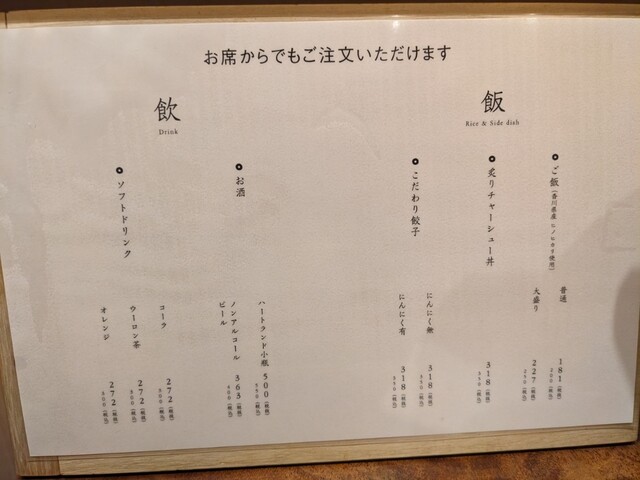 お席からでもご注文いただけます
飯
Rice & Side dish
ご飯(香川県産 ヒノヒカリ使用)
普通
181(税抜)
200(税込)
大盛り
227(税抜)
250(税込)
炙りチャーシュー丼
318(税抜)
350(税込)
こだわり餃子
にんにく無
318(税抜)
350(税込)
にんにく有
318(税抜)
350(税込)
飲
Drink
お酒
ハートランド小瓶
500(税抜)
550(税込)
ノンアルコール
ビール
363(税抜)
400(税込)
ソフトドリンク
コーラ
272(税抜)
300(税込)
ウーロン茶
272(税抜)
300(税込)
オレンジ
272(税抜)
300(税込)